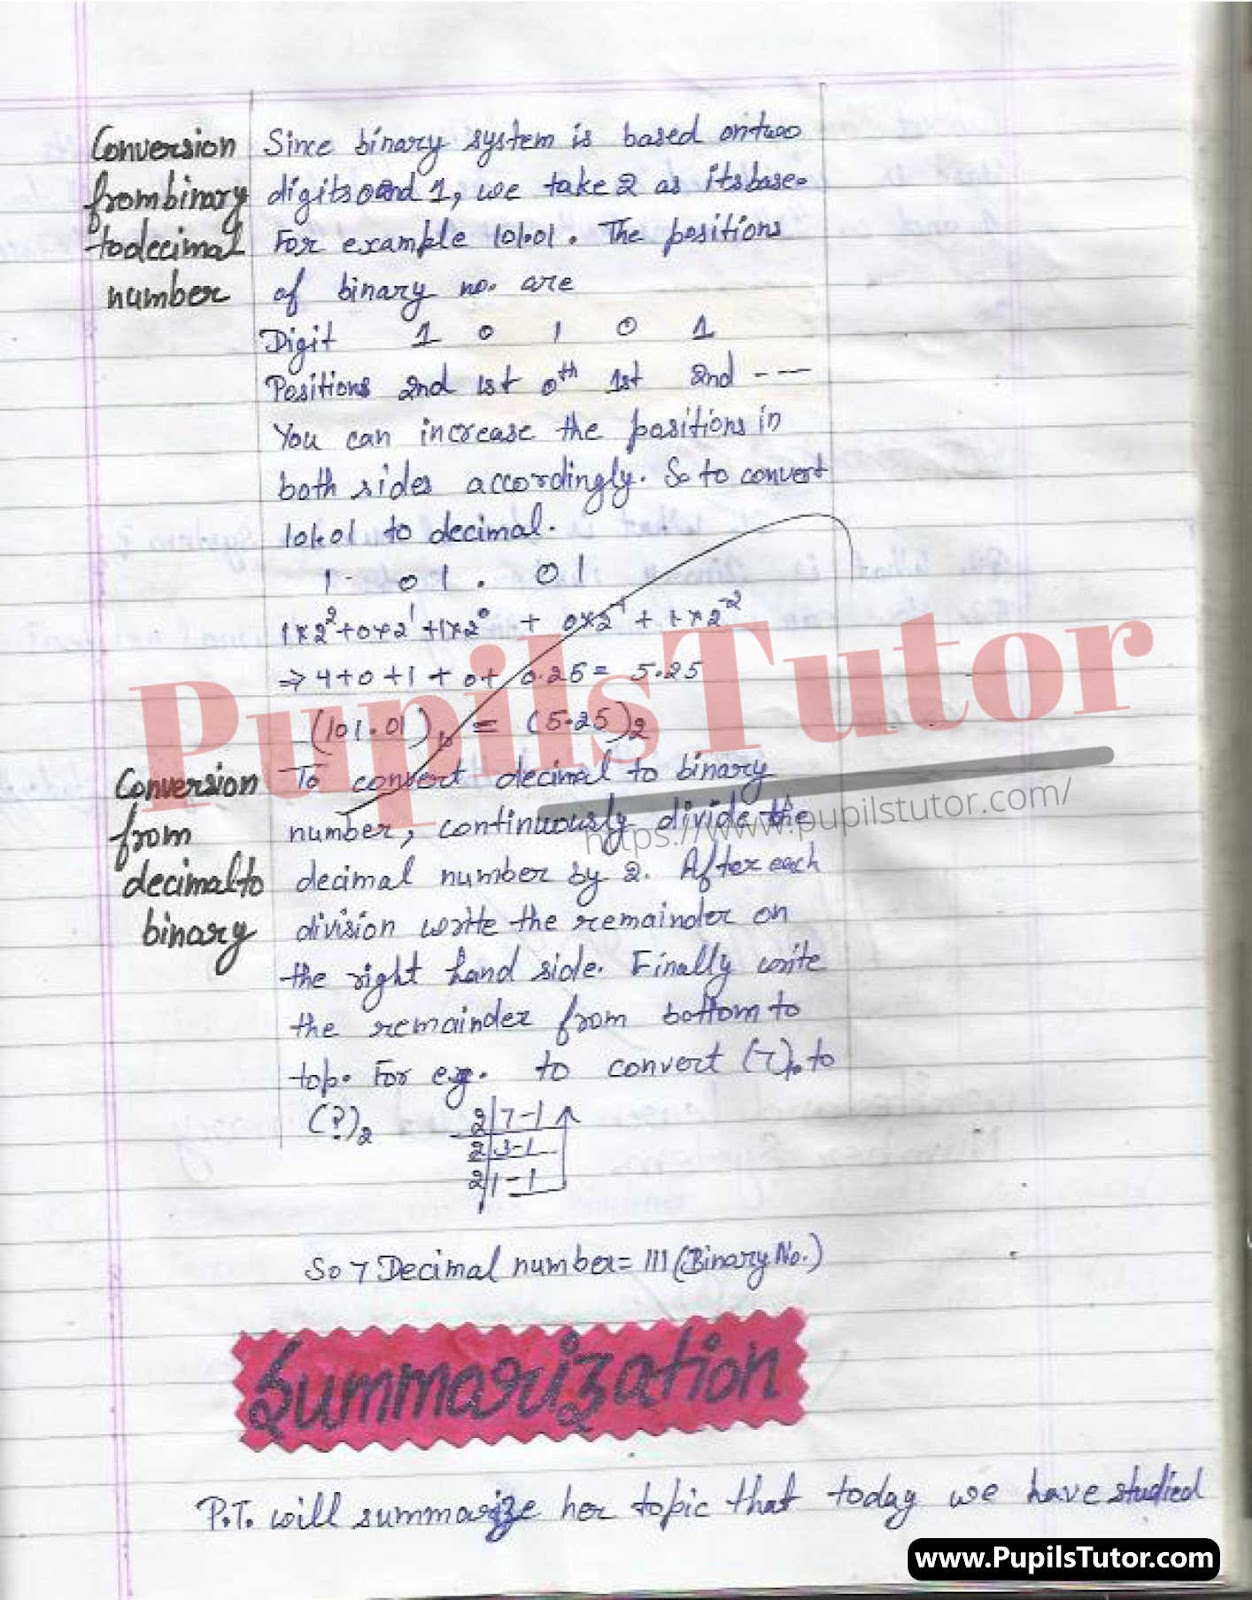 Conversion
from binary
to decimal
number
Since binary system is based on two
digits 0 and 1, we take 2 as its base.
For example 101.01. The positions
of binary no. are
Digit 1 0 1 0 1
Positions 2nd 1st 0th 1st 2nd ---
You can increase the positions in
both sides accordingly. So to convert
101.01 to decimal.
1 01 . 01
1×2²+0×2¹+1×2⁰ + 0×2⁻¹ + 1×2⁻²
⇒ 4+0+1 + 0+ 0.25 = 5.25
(101.01)₁₀ = (5.25)₂
Conversion
from
decimal to
binary
To convert decimal to binary
number, continuously divide the
decimal number by 2. After each
division write the remainder on
the right hand side. Finally write
the remainder from bottom to
top. For e.g. to convert (7)₁₀ to
(?)₂
2|7-1
2|3-1
2|1-1
So 7 Decimal number = 111 (Binary No.)
Summarization
P.T. will summarize her topic that today we have studied
PupilsTutor
https://www.pupilstutor.com/
www.PupilsTutor.com